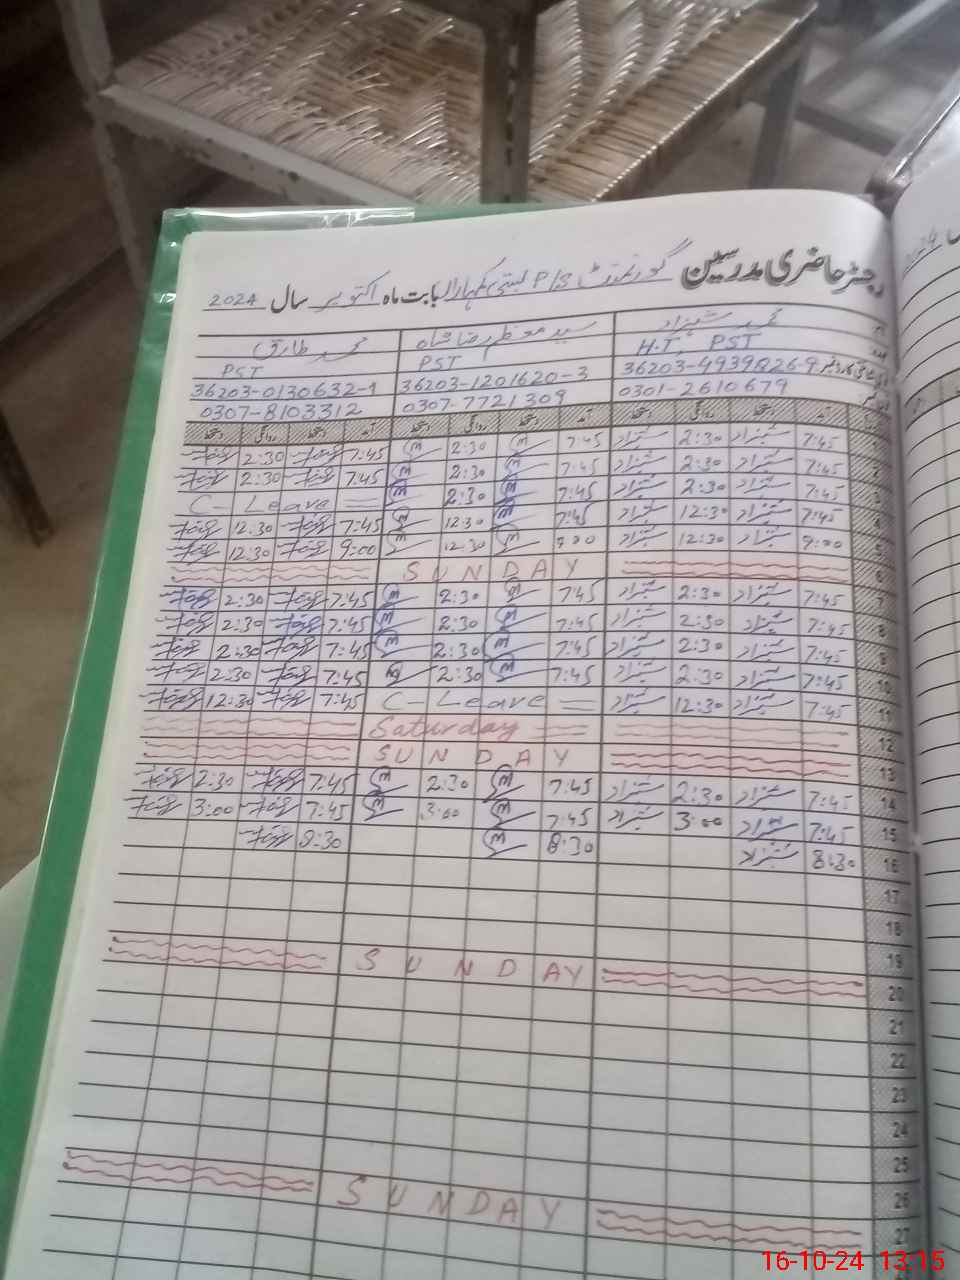 رجسٹر حاضری مدرسین گورنمنٹ P/S بستی کمہاراں بابت ماہ اکتوبر سال 2024
محمد شہزاد سید معظم رضا شاہ محمد طارق
H.T, PST PST PST
36203-4939826-9 36203-1201620-3 36203-0130632-1
0301-2610679 0307-7721309 0307-8103312
آمد دستخط روانگی دستخط آمد دستخط روانگی دستخط آمد دستخط روانگی دستخط
7:45 شہزاد 2:30 شہزاد 7:45 2:30 7:45 2:30
2 7:45 شہزاد 2:30 شہزاد 7:45 2:30 7:45 2:30
3 7:45 شہزاد 2:30 شہزاد 7:45 2:30 C-Leave
4 7:45 شہزاد 12:30 شہزاد 7:45 12:30 7:45 12:30
5 9:00 شہزاد 12:30 شہزاد 9:00 12:30 9:00 12:30
6 SUNDAY
7 7:45 شہزاد 2:30 شہزاد 7:45 2:30 7:45 2:30
8 7:45 شہزاد 2:30 شہزاد 7:45 2:30 7:45 2:30
9 7:45 شہزاد 2:30 شہزاد 7:45 2:30 7:45 2:30
10 7:45 شہزاد 2:30 شہزاد 7:45 2:30 7:45 2:30
11 7:45 شہزاد 12:30 شہزاد C-Leave 7:45 12:30
12 Saturday
13 SUNDAY
14 7:45 شہزاد 2:30 شہزاد 7:45 2:30 7:45 2:30
15 7:45 شہزاد 3:00 شہزاد 7:45 3:00 7:45 3:00
16 8:30 شہزاد 8:30 8:30
17
18
19
20 SUNDAY
21
22
23
24
25
26
27 SUNDAY
16-10-24 13:15